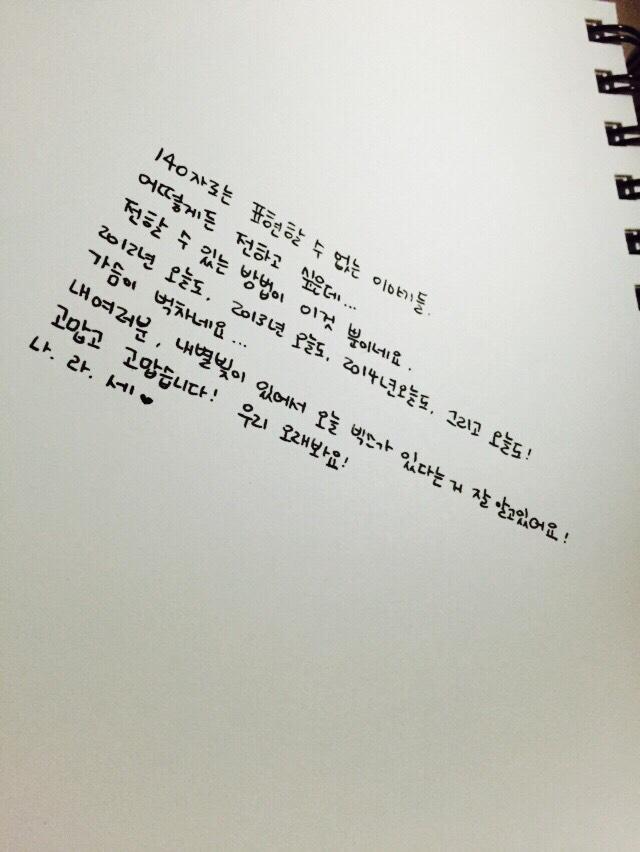 140자로는 표현할 수 없는 이야기들.
어떻게든 전하고 싶은데...
전할 수 있는 방법이 이것 뿐이네요.
2012년 오늘도, 2013년 오늘도, 2014년오늘도, 그리고 오늘도!
가슴이 벅차네요...
내여러분, 내별빛이 있어서 오늘 빅스가 있다는거 잘 알고있어요!
고맙고 고맙습니다! 우리 오래봐요!
나. 라. 세♥